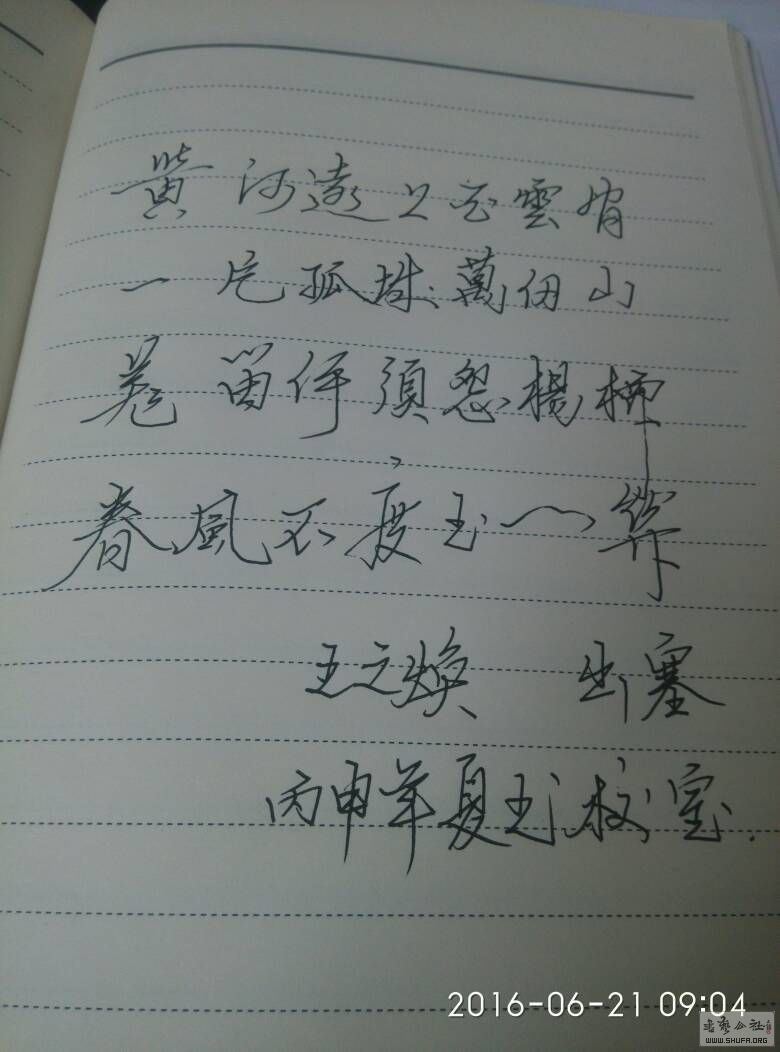 黄河遠上白雲間
一片孤城萬仞山
羌笛何須怨楊柳
春風不度玉門關
王之焕 出塞
丙申年夏于校室.
2016-06-21 09:04
書藝公社
WWW.SHUFA.ORG